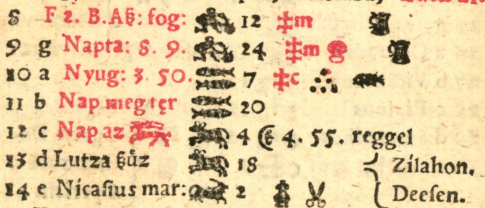 8 F 2. B.Aß: fog: 12 ‡m
9 g Napta: 8. 9. 24 ‡m
10 a Nyug: 3. 50. 7 ‡c
11 b Nap megter 20
12 c Nap az 4 4. 55. reggel
13 d Lutza ßűz 18 Zilahon.
14 e Nicasius mar: 2 Deesen.